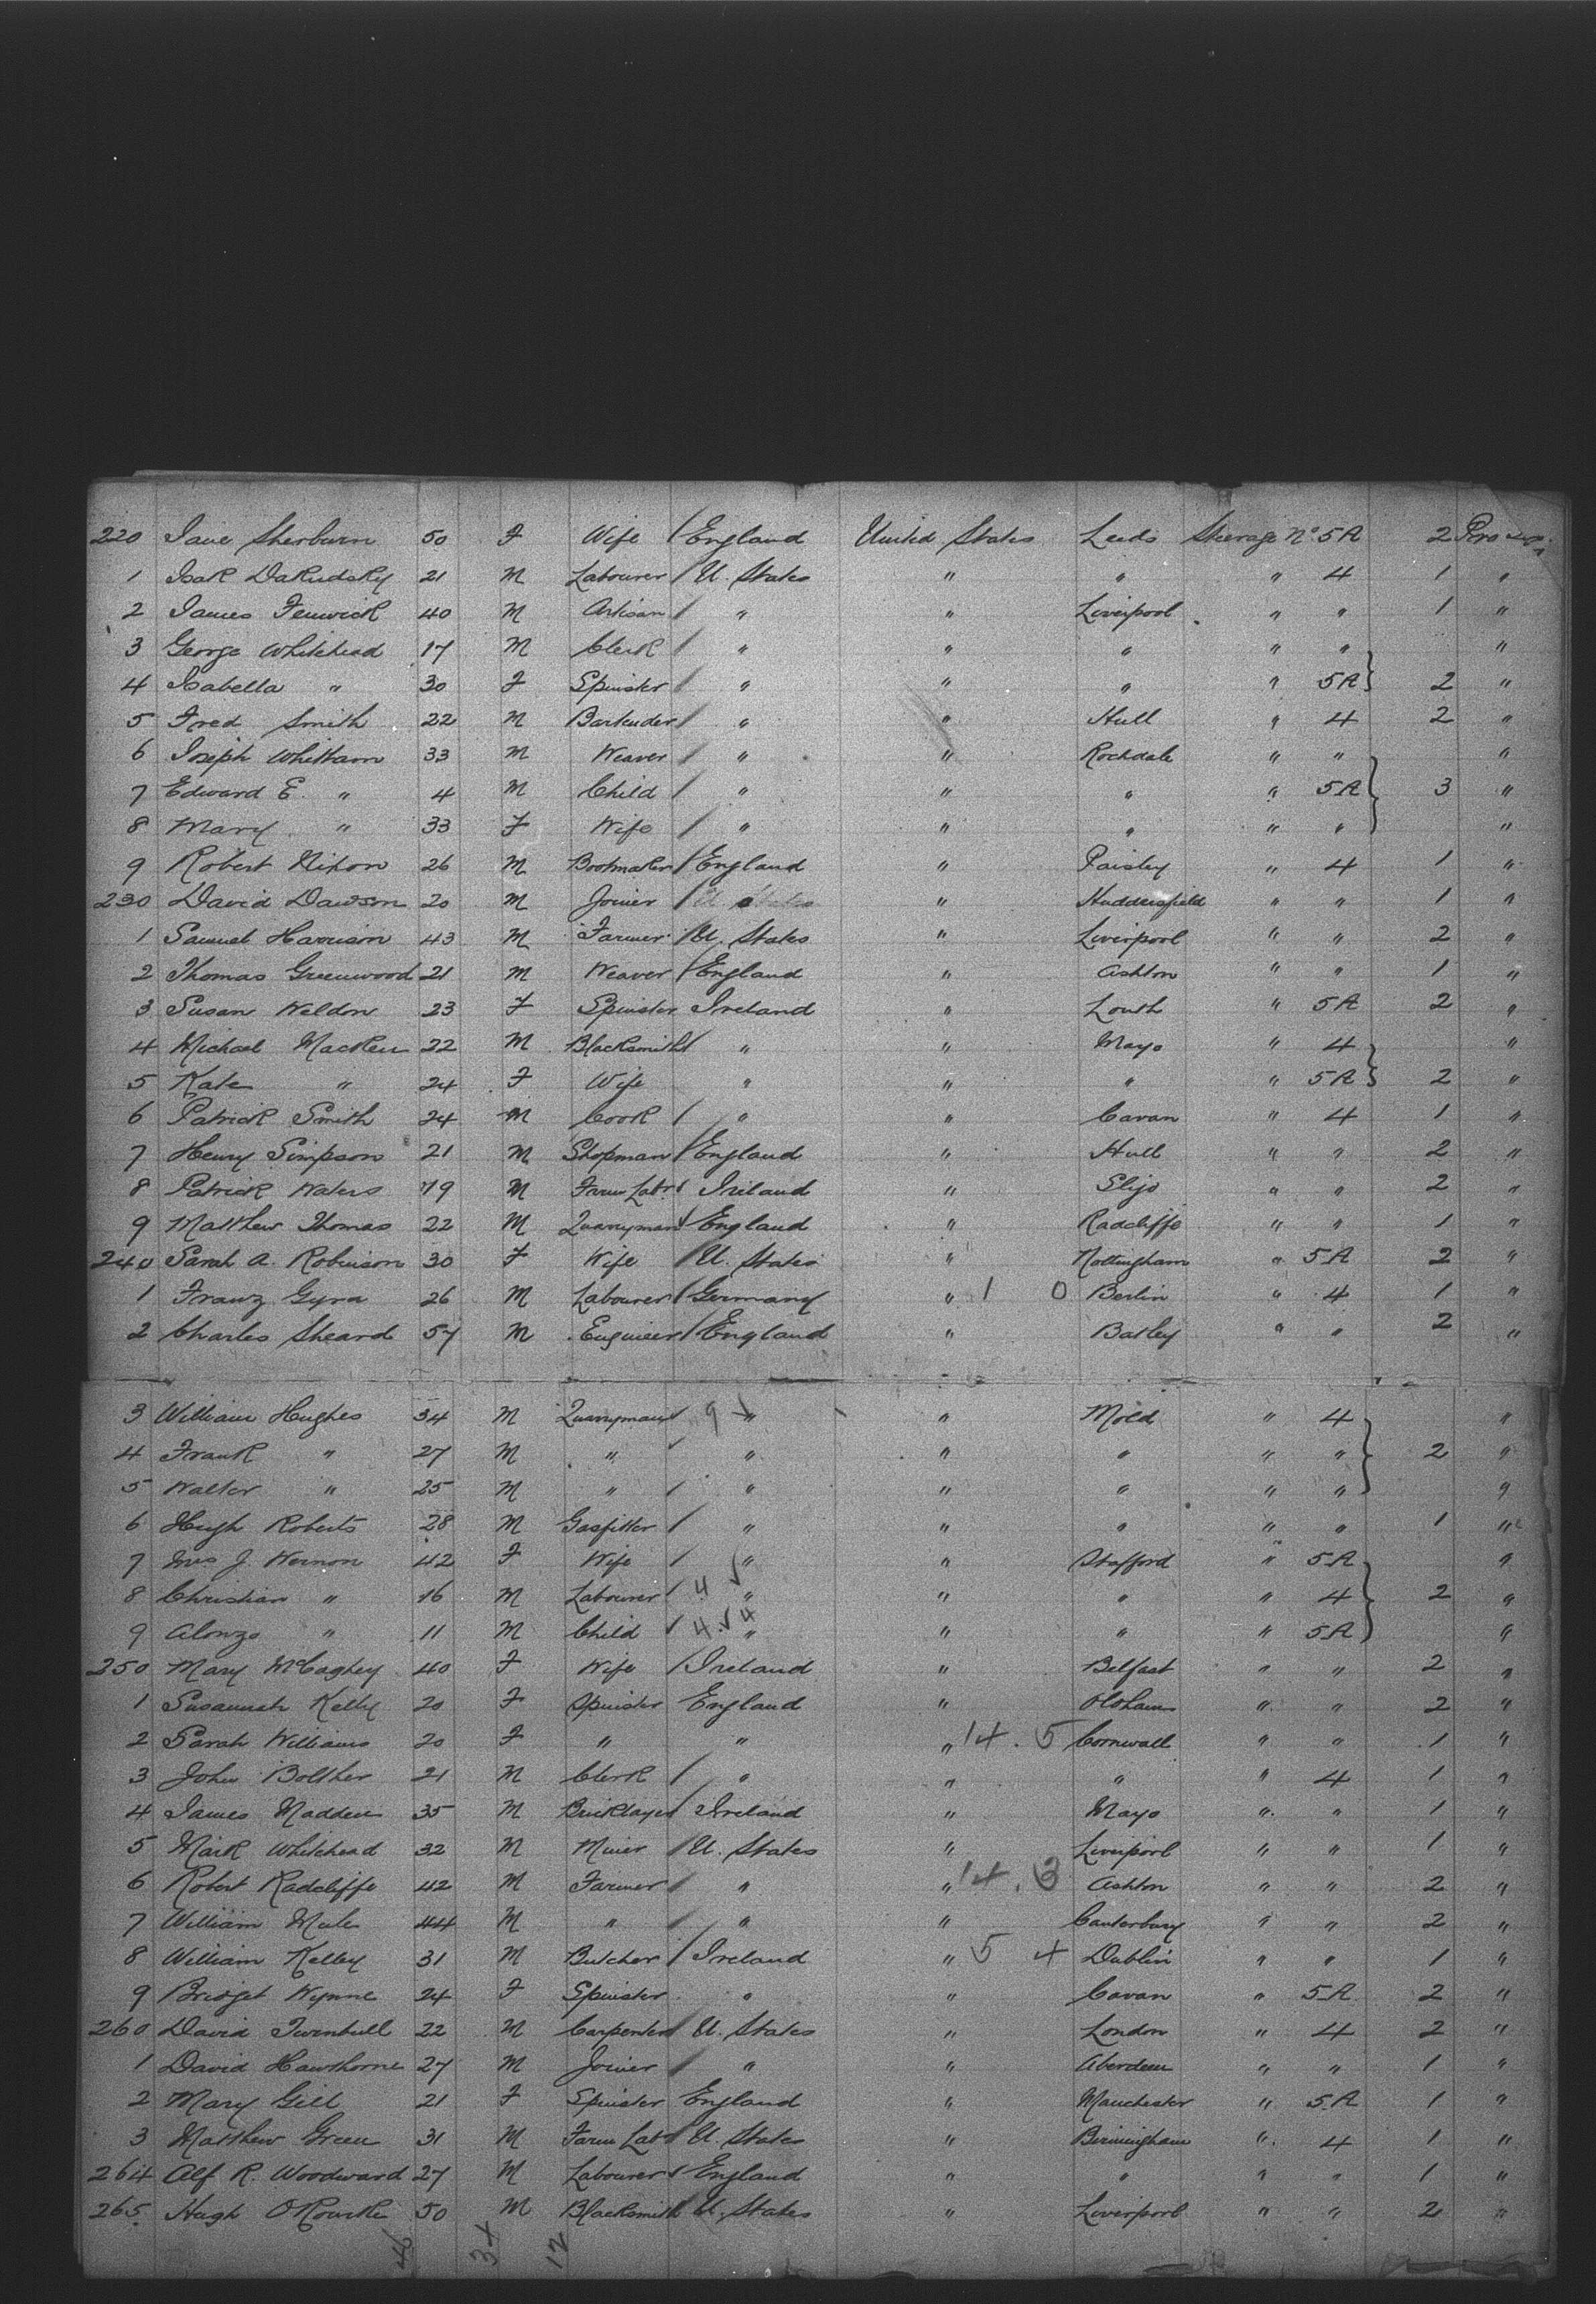 220 Jane Sherburn 50 F Wife / England United States Leeds Steerage No 5A 2 Pro
1 Isak Dakudsky 21 M Labourer / U. States " " " 4 1 "
2 James Fenwick 40 M Artisan / " " Liverpool " " 1 "
3 George Whitehead 17 M Clerk / " " " " " "
4 Isabella " 30 F Spinster / " " " " 5A } 2 "
5 Fred Smith 22 M Bartender / " " Hull " 4 2 "
6 Joseph Whittam 33 M Weaver / " " Rochdale " " "
7 Edward E. " 4 M Child / " " " " 5A } 3 "
8 Mary " 33 F Wife / " " " " " "
9 Robert Nixon 26 M Bootmaker / England " Paisley " 4 1 "
230 David Dawson 20 M Joiner / U. States Huddersfield " " 1 "
1 Samuel Harrison 43 M Farmer / U. States " Liverpool " " 2 "
2 Thomas Greenwood 21 M Weaver / England " Ashton " " 1 "
3 Susan Weldon 23 F Spinster Ireland " Louth " 5A 2 "
4 Michael Macken 22 M Blacksmith / " " Mayo " 4 "
5 Kate " 24 F Wife " " " " 5A } 2 "
6 Patrick Smith 24 M Cook / " " Cavan " 4 1 "
7 Henry Simpson 21 M Shopman / England " Hull " " 2 "
8 Patrick Waters 19 M Farm Labr / Ireland " Sligo " " 2 "
9 Matthew Thomas 22 M Quarryman / England " Radcliffe " " 1 "
240 Sarah A. Robinson 30 F Wife / U. States " Nottingham " 5A 2 "
1 Franz Gyra 26 M Labourer / Germany " 1 0 Berlin " 4 1 "
2 Charles Sheard 57 M Engineer / England " Batley " " 2 "
3 William Hughes 34 M Quarryman / 9 " " Mold " 4 "
4 Frank " 27 M " / " " " " " } 2 "
5 Walter " 25 M " / " " " " " "
6 Hugh Roberts 28 M Gasfitter / " " " " " 1 "
7 Mrs J. Vernon 42 F Wife / " " Stafford " 5A "
8 Christian " 16 M Labourer / 4 " " " " 4 } 2 "
9 Alonzo " 11 M Child / 4 4 " " " " 5A "
250 Mary McCaghey 40 F Wife / Ireland Belfast " " 2 "
1 Susannah Kelly 20 F Spinster England " Oldham " " 2 "
2 Sarah Williams 20 F " " " 14. 5 Cornwall " " 1 "
3 John Bolther 21 M Clerk / " " " " 4 1 "
4 James Madden 35 M Bricklayer / Ireland " Mayo " " 1 "
5 Mark Whitehead 32 M Miner / U. States " Liverpool " " 1 "
6 Robert Radcliffe 42 M Farmer / " " 14. 3 Ashton " " 2 "
7 William Male 44 M " / " " Canterbury " " 2 "
8 William Kelley 31 M Butcher / Ireland " 5 4 Dublin " " 1 "
9 Bridget Wynne 24 F Spinster " " Cavan " 5A 2 "
260 David Turnbull 22 M Carpenter / U. States " London " 4 2 "
1 David Hawthorne 27 M Joiner / " " Aberdeen " " 1 "
2 Mary Gill 21 F Spinster England " Manchester " 5A 1 "
3 Matthew Green 31 M Farm Labr / U. States " Birmingham " 4 1 "
264 Alf R. Woodward 27 M Labourer / England " " " " 1 "
265 Hugh O'Rourke 50 M Blacksmith U. States " Liverpool " " 2 "
46 34 12